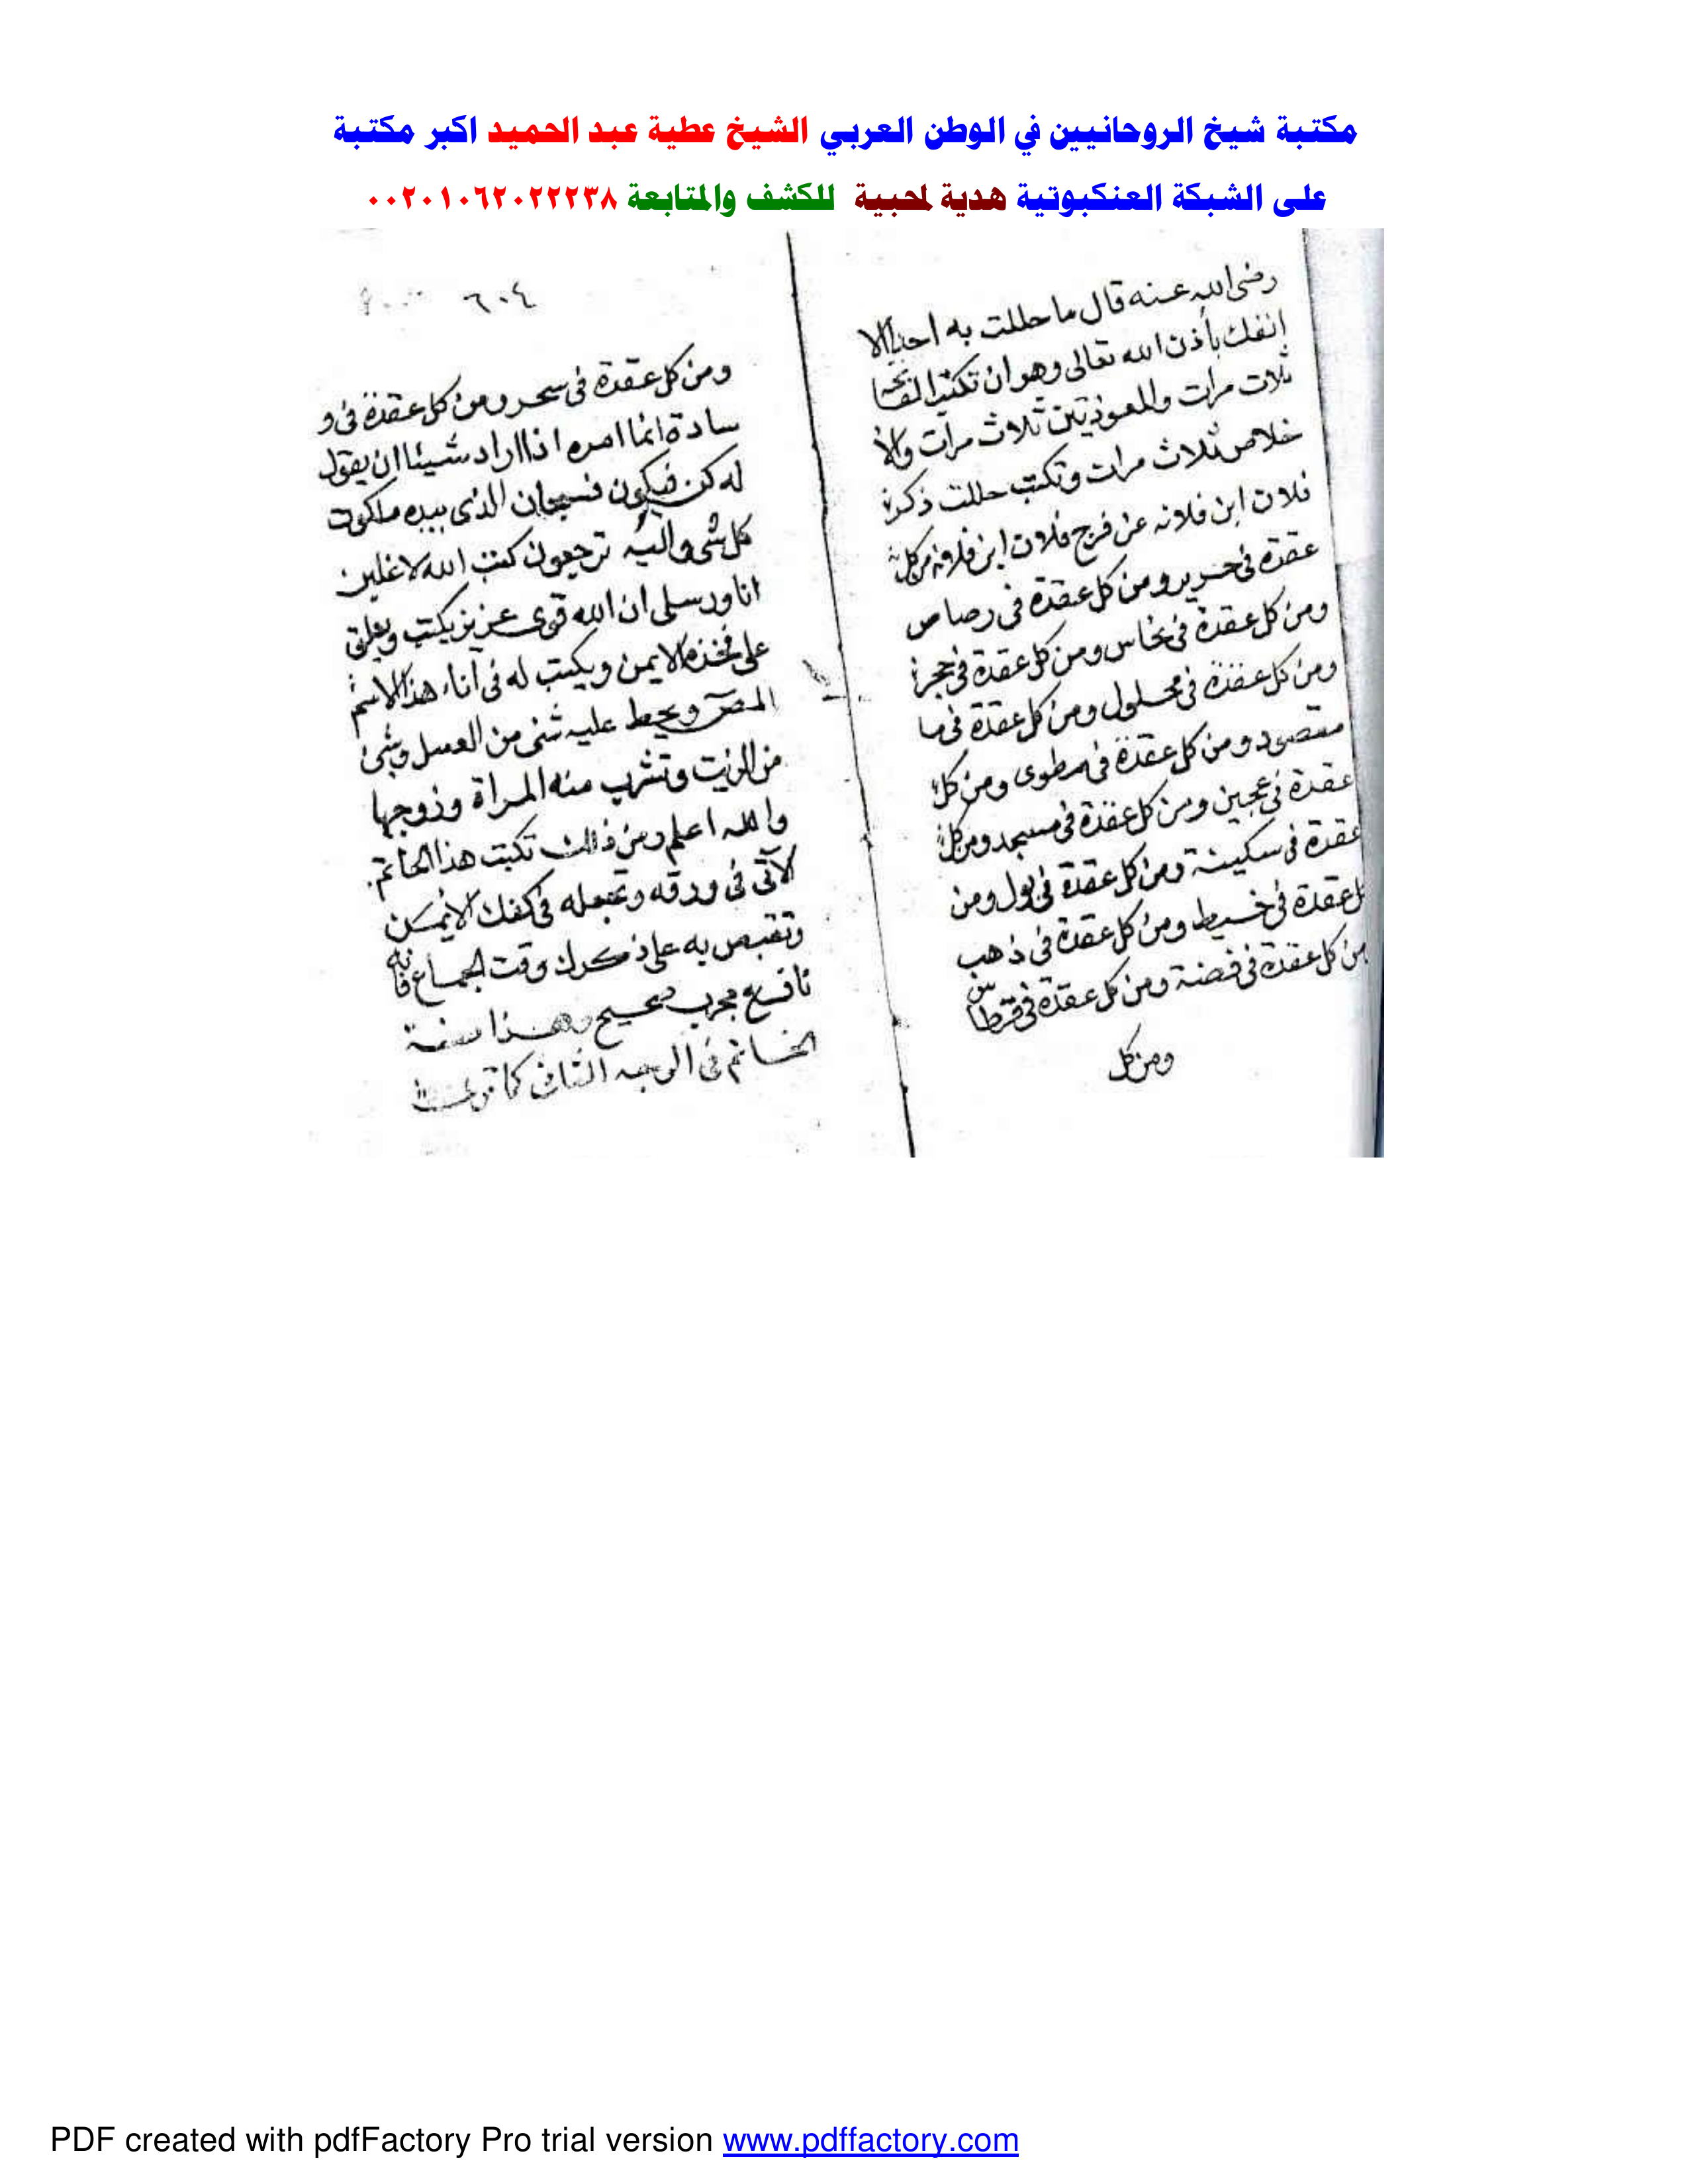 مكتبة شيخ الروحانيين في الوطن العربي الشيخ عطية عبد الحميد اكبر مكتبة
على الشبكة العنكبوتية هدية لمحبية للكشف والمتابعة ٠٠٢٠١٠٦٢٠٢٢٢٣٨
رضى الله عنه قال ما حللت به احدا الا
انفك بأذن الله تعالى وهو ان تكتب الفاتحة
ثلاث مرات والمعوذتين ثلاث مرات والا
خلاص ثلاث مرات وتكتب حللت ذكر
فلان ابن فلانه عن فرج فلان ابن فلانه من كل
عقدة فى حرير ومن كل عقدة فى رصاص
ومن كل عقدة فى نحاس ومن كل عقدة فى حجر
ومن كل عقدة فى محلول ومن كل عقدة فى ما
مقصود ومن كل عقدة فى مطوى ومن كل
عقدة فى عجين ومن كل عقدة فى مسجد ومن كل
عقدة فى سكينة ومن كل عقدة فى بول ومن
كل عقدة فى خيط ومن كل عقدة فى ذهب
من كل عقدة فى فضة ومن كل عقدة فى قرطاس
ومن كل
٦٠٤
ومن كل عقدة فى سحر ومن كل عقدة فى و
سادة انما امره اذا اراد شيئا ان يقول
له كن فيكون فسبحان الذى بيده ملكوت
كل شى واليه ترجعون كتب الله لاغلبن
انا ورسلى ان الله قوى عزيز يكتب ويعلق
على فخذه الايمن ويكتب له فى اناء هذا الاسم
المص ويحط عليه شى من العسل وشئ
من الزيت وتشرب منه المراة وزوجها
والله اعلم ومن ذلك تكتب هذا الخاتم
الآتى فى ورقه وتجعله فى كفك الايمن
وتقبض به على ذكرك وقت الجماع فانه
نافع مجرب صحيح وهذا صفة
الخاتم فى الوجه الثانى كما
PDF created with pdfFactory Pro trial version www.pdffactory.com